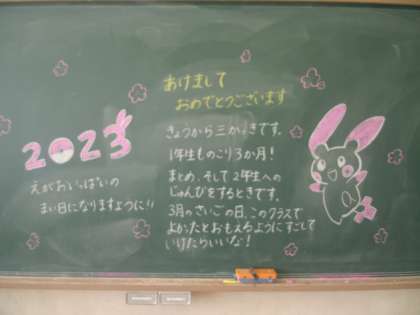 2023
えがおいっぱいの
まい日になりますように!!
あけまして
おめでとうございます
きょうから三がっきです。
1年生ものこり3か月!
まとめ、そして2年生への
じゅんびをするときです。
3月のさいごの日、このクラスで
よかったとおもえるようにすごして
いけたらいいな!